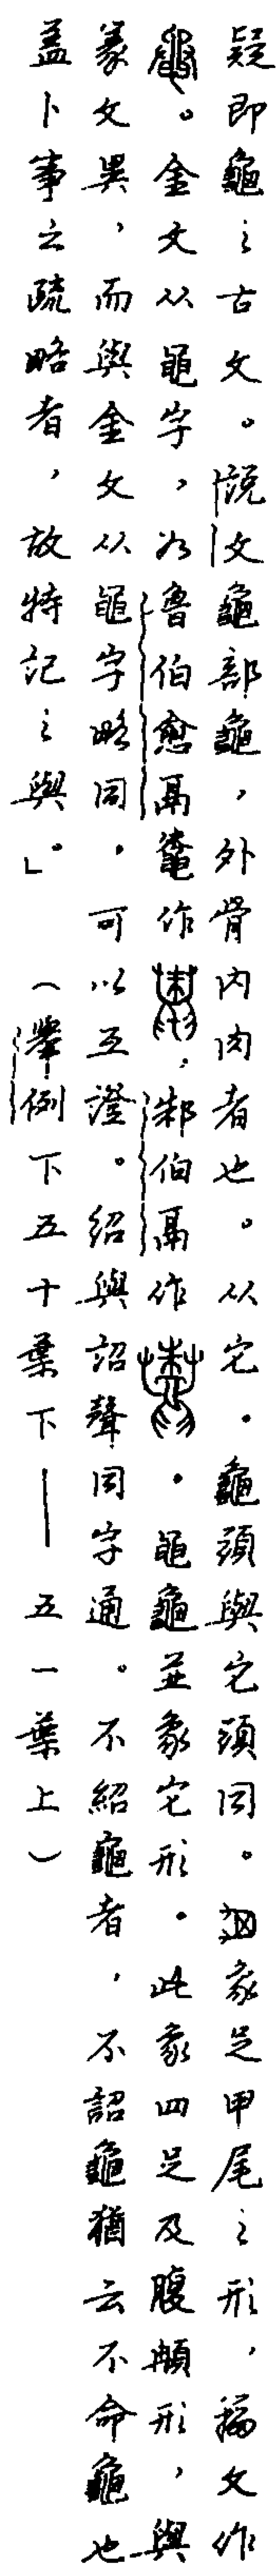 疑即龜之古文。說文龜部龜，外骨內肉者也。从它。龜頭與它頭同。象足甲尾之形，籀文作
。金文从黽字，如魯伯愈鬲鼄作，邾伯鬲作。黽龜並象它形。此象四足及腹形，與
篆文異，而與金文从黽字略同，可以互證。紹與詔聲同字通。不紹龜者，不詔龜猶云不命龜也
蓋卜事之疏略者，故特記之與。」（舉例下五十葉下——五一葉上）